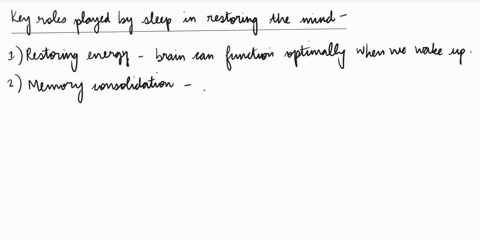 Key roles played by sleep in restoring the mind -
1) Restoring energy - brain can function optimally when we wake up.
2) Memory consolidation - .